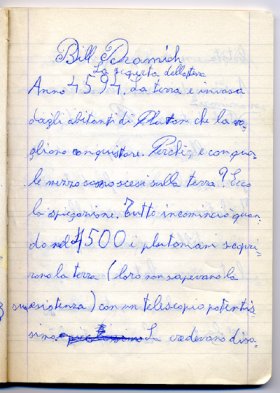 Bill
La della terra
Anno 4594. La terra è invasa
dagli abitanti di Pluton che la vo-
gliono conquistare. Perchè e con qua-
le mezzo sono scesi sulla terra? Ecco
la spiegazione. Tutto incominciò quan-
do nel 4500 i plutoniani scopri-
rono la terra (loro non sapevano la
sua esistenza) con un telescopio potentis
simo. credevano diso-